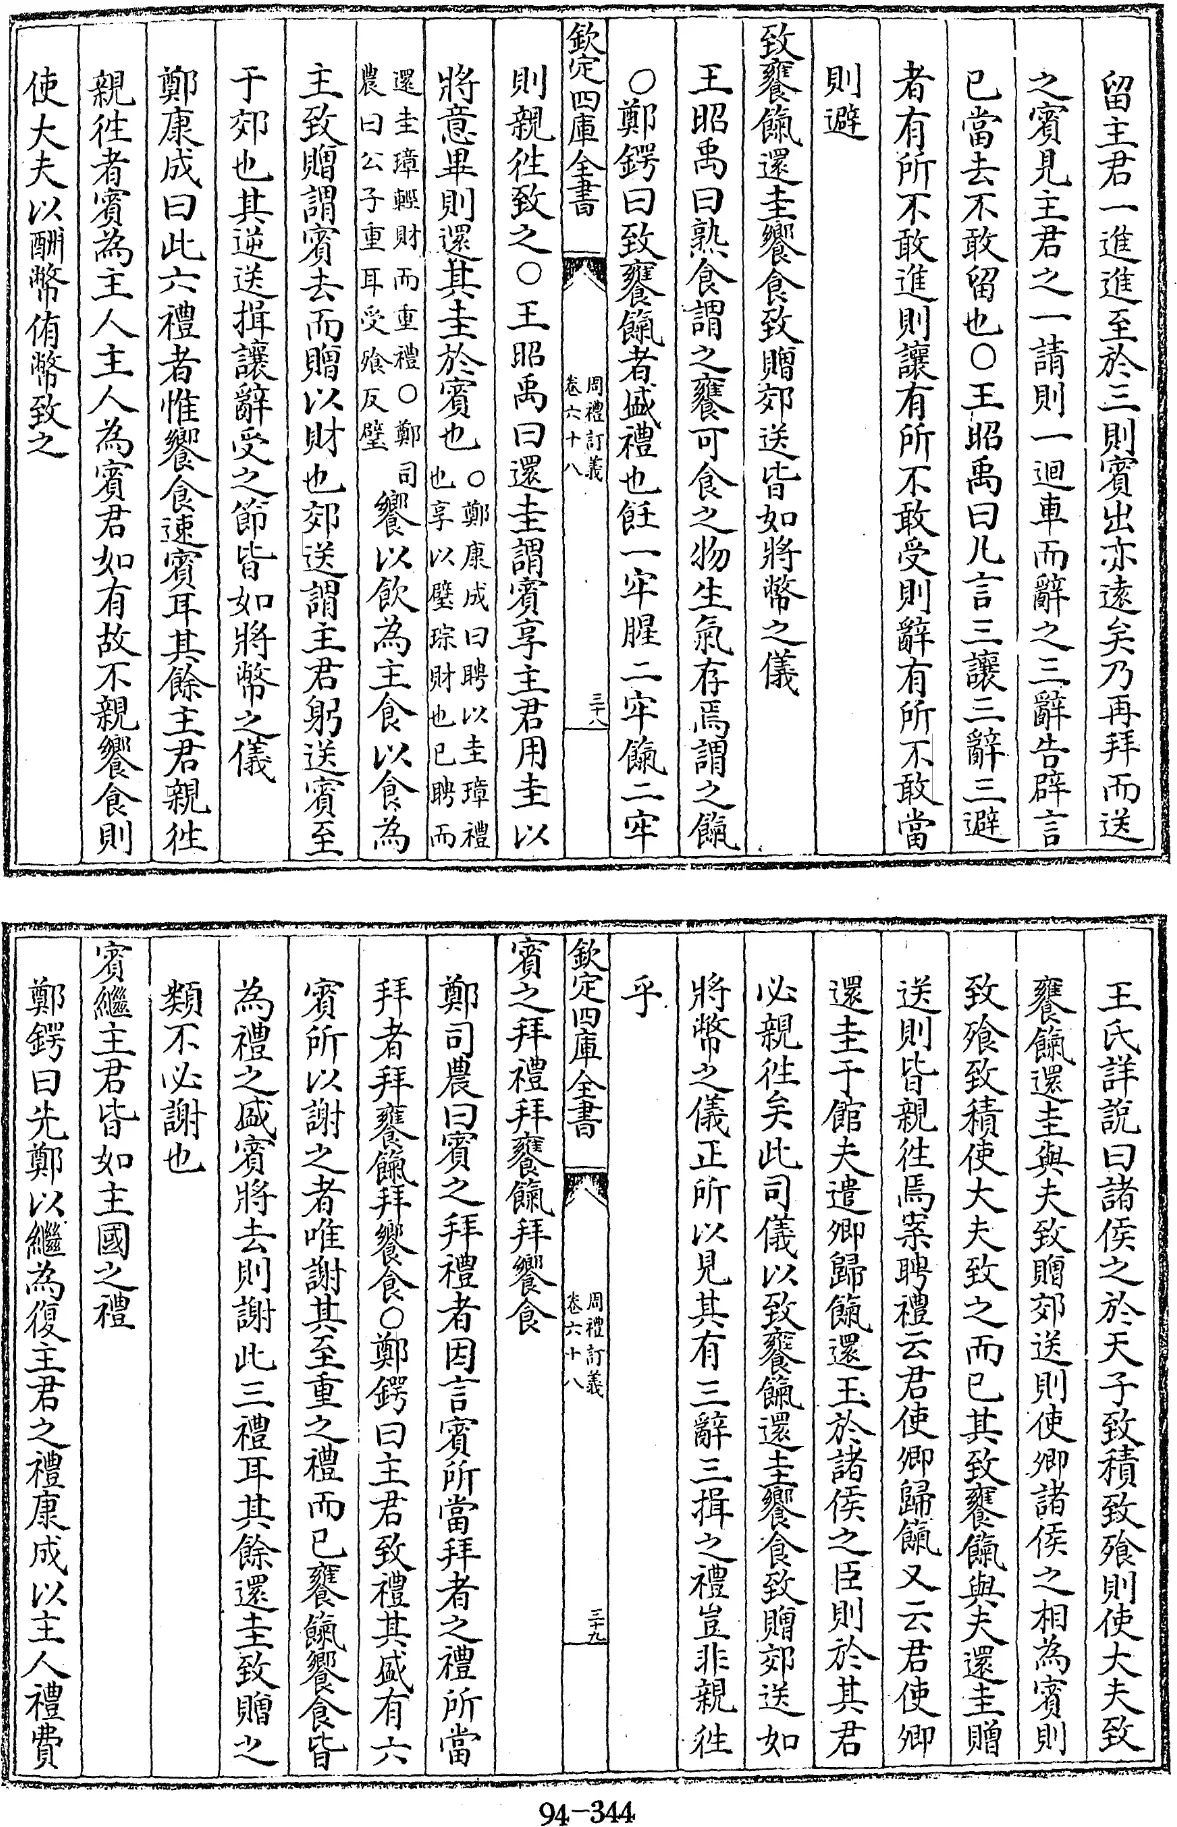 留主君一進進至於三則賓出亦遠矣乃再拜而送
之賓見主君之一請則一迴車而辭之三辭告辟言
已當去不敢留也○王昭禹曰凡言三讓三辭三避
者有所不敢進則讓有所不敢受則辭有所不敢當
則避
致饔餼還圭饗食致贈郊送皆如將幣之儀
王昭禹曰熟食謂之饔可食之物生氣存焉謂之餼
○鄭鍔曰致饔餼者盛禮也飪一牢腥二牢餼二牢
欽定四庫全書
周禮訂義
卷六十八
三十八
則親徃致之○王昭禹曰還圭謂賓享主君用圭以
將意畢則還其圭於賓也
○鄭康成曰聘以圭璋禮
也享以璧琮財也已聘而
還圭璋輕財而重禮○鄭司
農曰公子重耳受飧反璧
饗以飲為主食以食為
主致贈謂賓去而贈以財也郊送謂主君躬送賓至
于郊也其逆送揖讓辭受之節皆如將幣之儀
鄭康成曰此六禮者惟饗食速賓耳其餘主君親徃
親徃者賓為主人主人為賓君如有故不親饗食則
使大夫以酬幣侑幣致之
王氏詳說曰諸侯之於天子致積致飧則使大夫致
饔餼還圭與夫致贈郊送則使卿諸侯之相為賓則
致飧致積使大夫致之而已其致饔餼與夫還圭贈
送則皆親徃焉案聘禮云君使卿歸餼又云君使卿
還圭于館夫遣卿歸餼還玉於諸侯之臣則於其君
必親徃矣此司儀以致饔餼還圭饗食致贈郊送如
將幣之儀正所以見其有三辭三揖之禮豈非親徃
乎
欽定四庫全書
周禮訂義
卷六十八
三十九
賓之拜禮拜饔餼拜饗食
鄭司農曰賓之拜禮者因言賓所當拜者之禮所當
拜者拜饔餼拜饗食○鄭鍔曰主君致禮其盛有六
賓所以謝之者唯謝其至重之禮而已饔餼饗食皆
為禮之盛賓將去則謝此三禮耳其餘還圭致贈之
類不必謝也
賓繼主君皆如主國之禮
鄭鍔曰先鄭以繼為復主君之禮康成以主人禮費
94-344